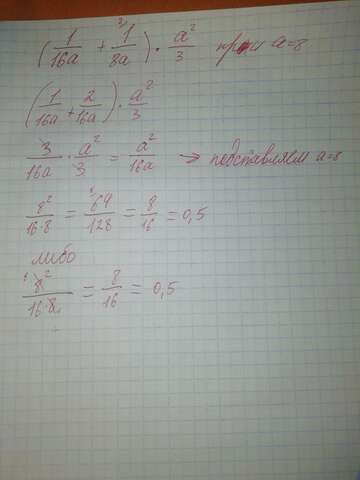 (1/16a + 1/8a) · a²/3 при a=8
(1/16a + 2/16a) · a²/3
3/16a · a²/3 = a²/16a → подставляем a=8
8²/16·8 = 64/128 = 8/16 = 0,5
либо
8²/16·8 = 8/16 = 0,5